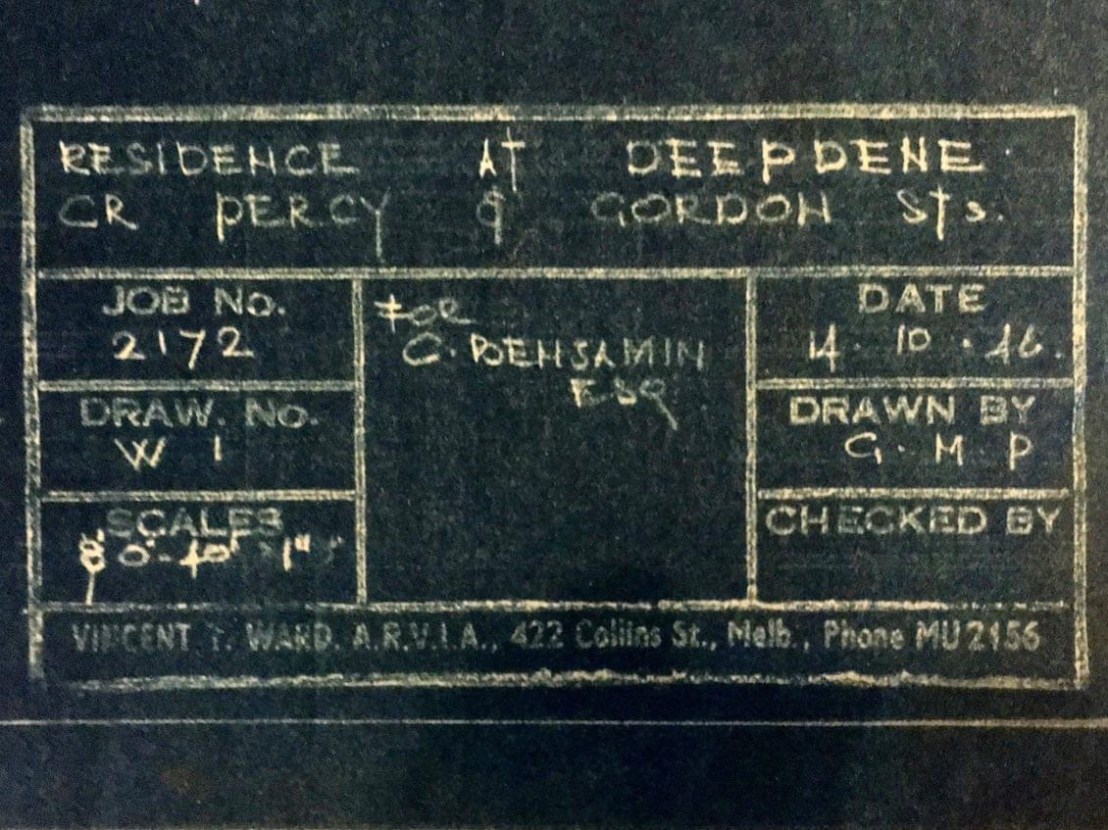 RESIDENCE AT DEEPDENE
CR PERCY & GORDON STs.
JOB No.
2172
FOR
C. BENJAMIN
ESQ
DATE
14. 10. 46.
DRAW. No.
W 1
DRAWN BY
G. M. P
SCALES
CHECKED BY
VINCENT T. WARD. A.R.V.I.A., 422 Collins St., Melb., Phone MU 2156